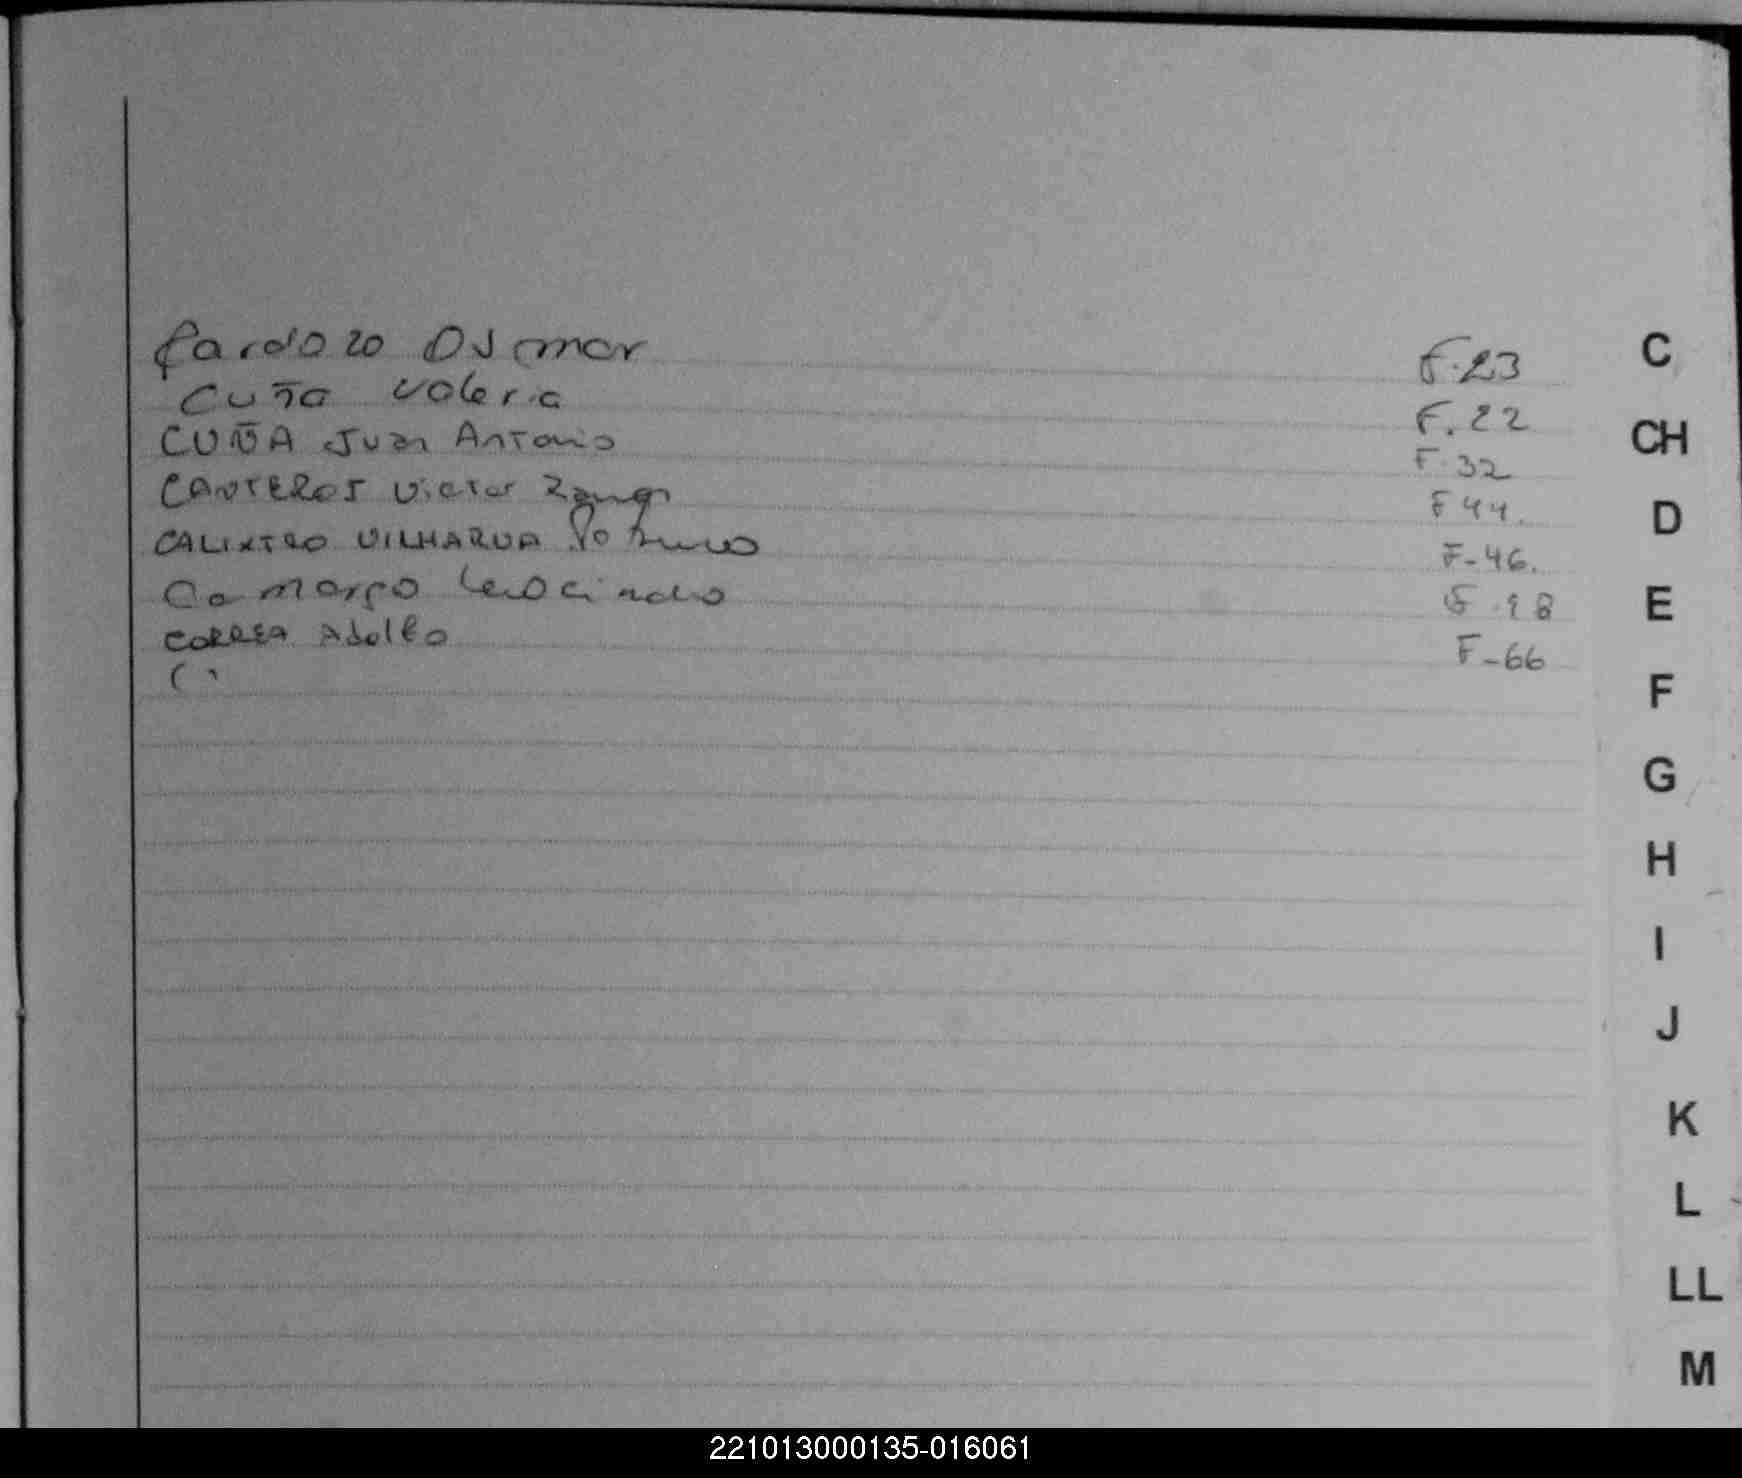 Cardozo Osmar F.23
Cuña Valeria F.22
CUÑA Juan Antonio F.32
CANTEROS Victor F 44.
CALIXTRO VILHARVA F-46.
Camargo F.18
CORREA Adolfo F-66
C
CH
D
E
F
G
H
I
J
K
L
LL
M
221013000135-016061